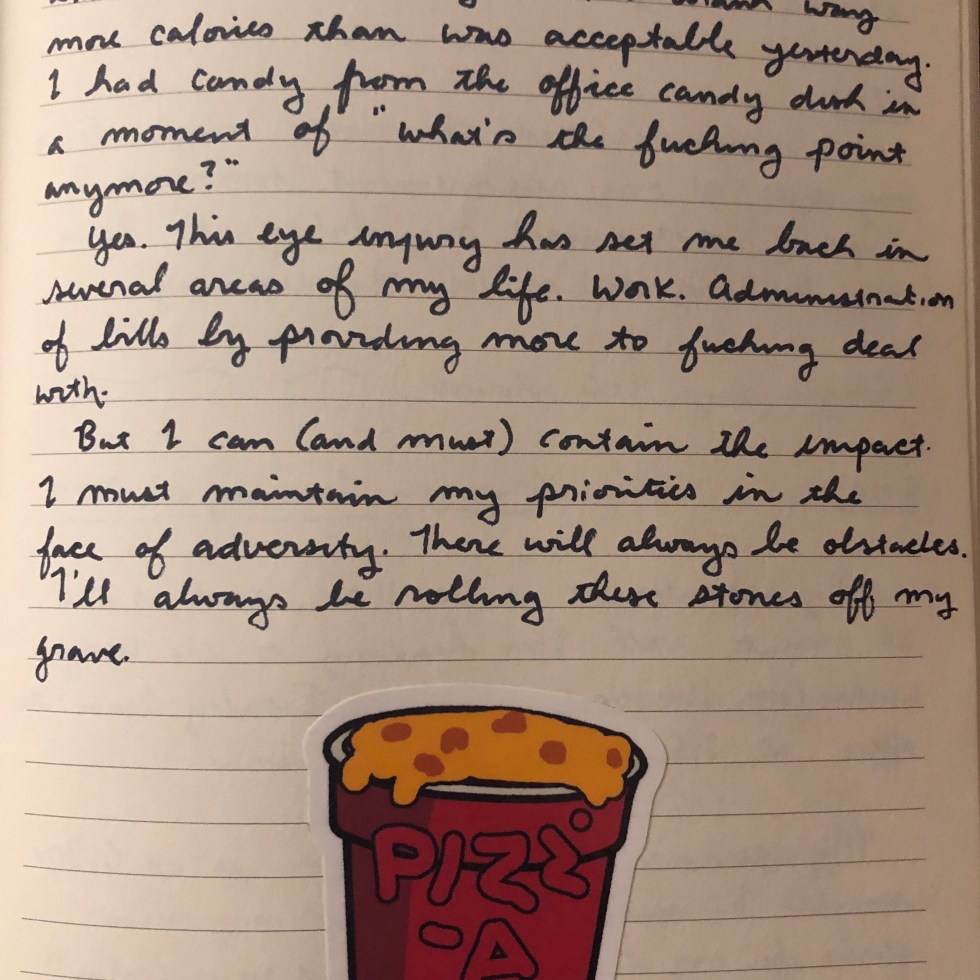 way
more calories than was acceptable yesterday.
I had candy from the office candy dish in
a moment of "what's the fucking point
anymore?"
Yes. This eye injury has set me back in
several areas of my life. Work. Administration
of bills by providing more to fucking deal
with.
But I can (and must) contain the impact.
I must maintain my priorities in the
face of adversity. There will always be obstacles.
I'll always be rolling these stones off my
grave.
PIZZ
-A